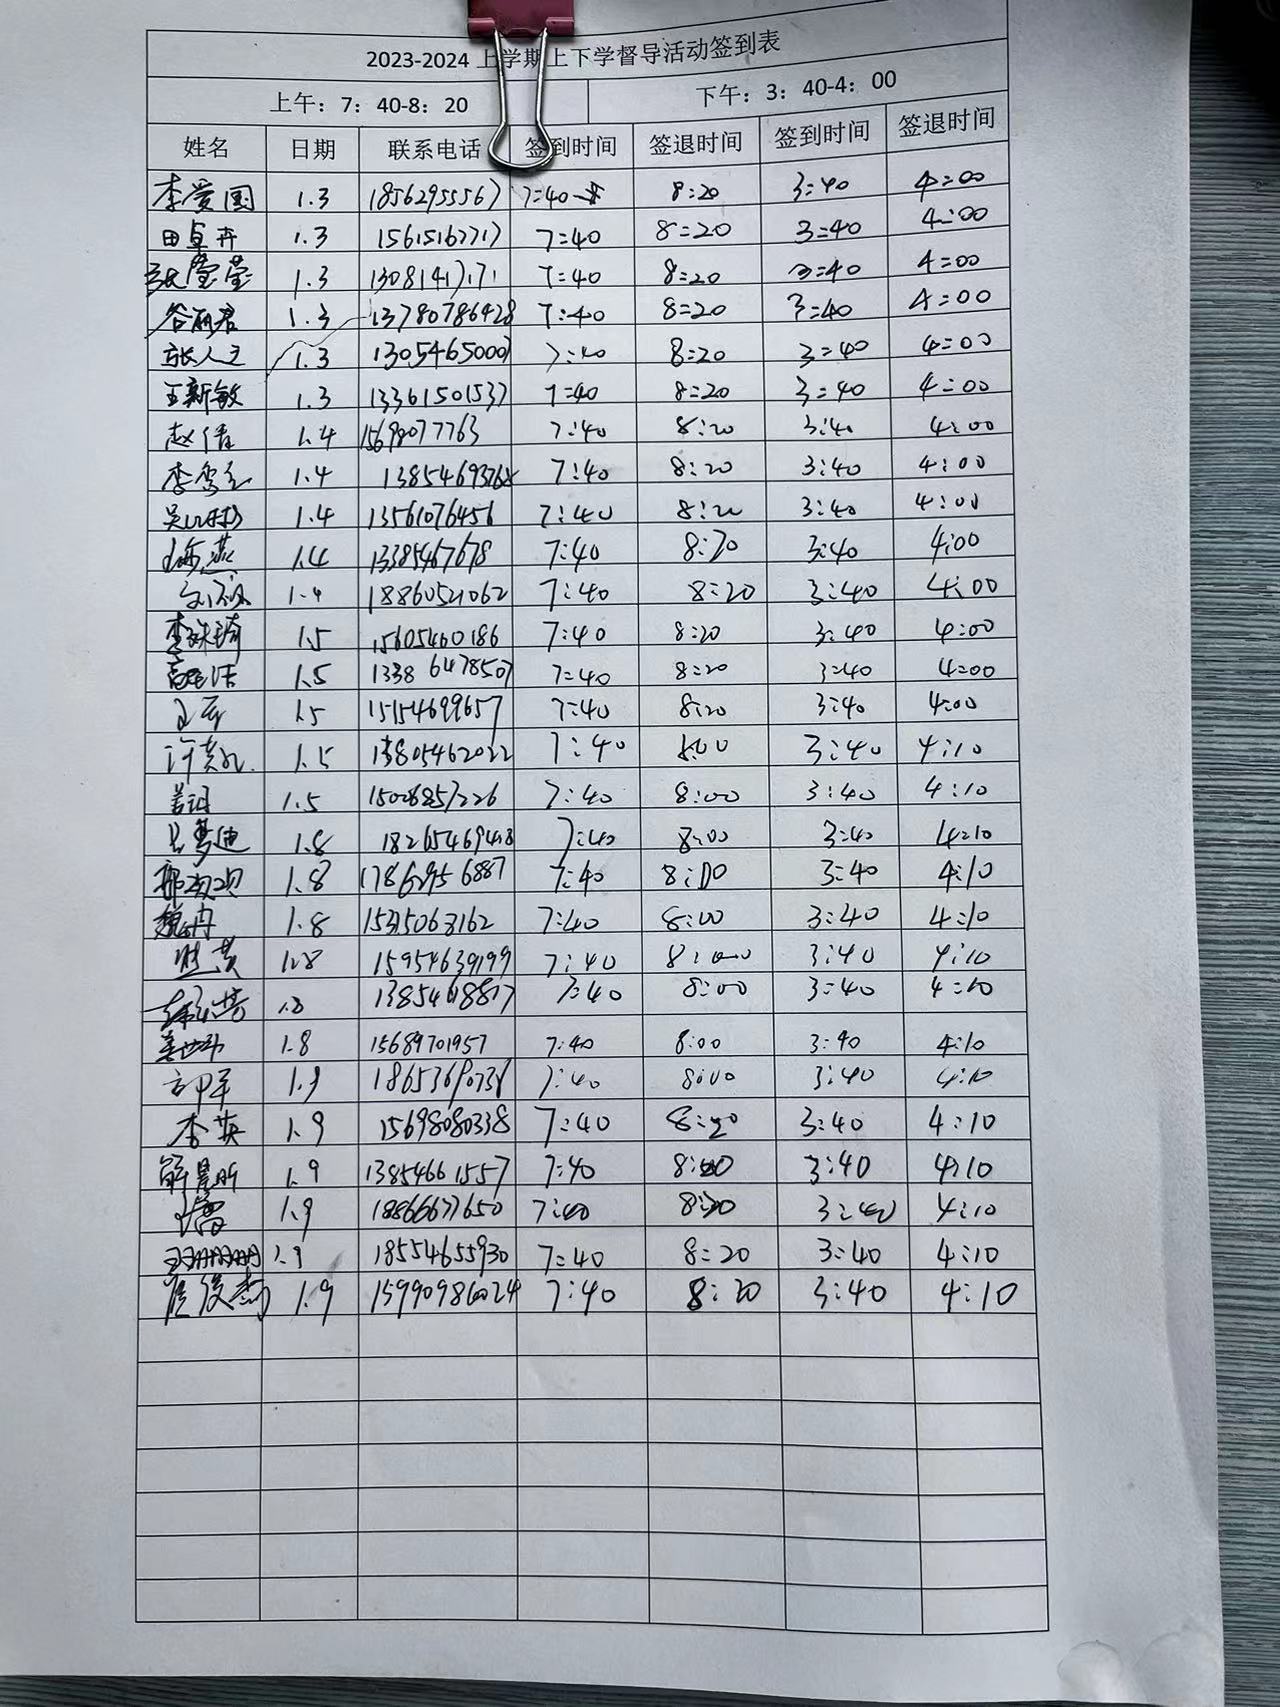 2023-2024 上学期上下学督导活动签到表
上午：7：40-8：20 下午：3：40-4：00
姓名 日期 联系电话 签到时间 签退时间 签到时间 签退时间
李爱国 1.3 18562955567 7:40 8:20 3:40 4:00
田卓卉 1.3 15615162717 7:40 8:20 3:40 4:00
张莹莹 1.3 7:40 8:20 3:40 4:00
谷丽君 1.3 13780786428 7:40 8:20 3:40 4:00
张人之 1.3 13054650007 7:40 8:20 3:40 4:00
王新敏 1.3 13361501537 7:40 8:20 3:40 4:00
赵倩 1.4 15698077763 7:40 8:20 3:40 4:00
1.4 13854693768 7:40 8:20 3:40 4:00
1.4 13561076456 7:40 8:20 3:40 4:00
1.4 13385467678 7:40 8:20 3:40 4:00
1.4 18860521062 7:40 8:20 3:40 4:00
李姝琦 1.5 15605460186 7:40 8:20 3:40 4:00
1.5 13386478507 7:40 8:20 3:40 4:00
1.5 15154699657 7:40 8:20 3:40 4:00
1.5 13805462022 7:40 8:00 3:40 4:10
1.5 7:40 8:00 3:40 4:10
吕梦迪 1.8 7:40 8:00 3:40 4:10
1.8 17862956887 7:40 8:00 3:40 4:10
魏冉 1.8 15315063162 7:40 8:00 3:40 4:10
1.8 15954639199 7:40 8:00 3:40 4:10
1.8 7:40 8:00 3:40 4:10
1.8 15689701957 7:40 8:00 3:40 4:10
1.9 7:40 8:00 3:40 4:10
李英 1.9 15698080338 7:40 8:20 3:40 4:10
1.9 13854661557 7:40 8:20 3:40 4:10
1.9 18866677650 7:40 8:20 3:40 4:10
1.9 18554655930 7:40 8:20 3:40 4:10
1.9 15990986024 7:40 8:20 3:40 4:10